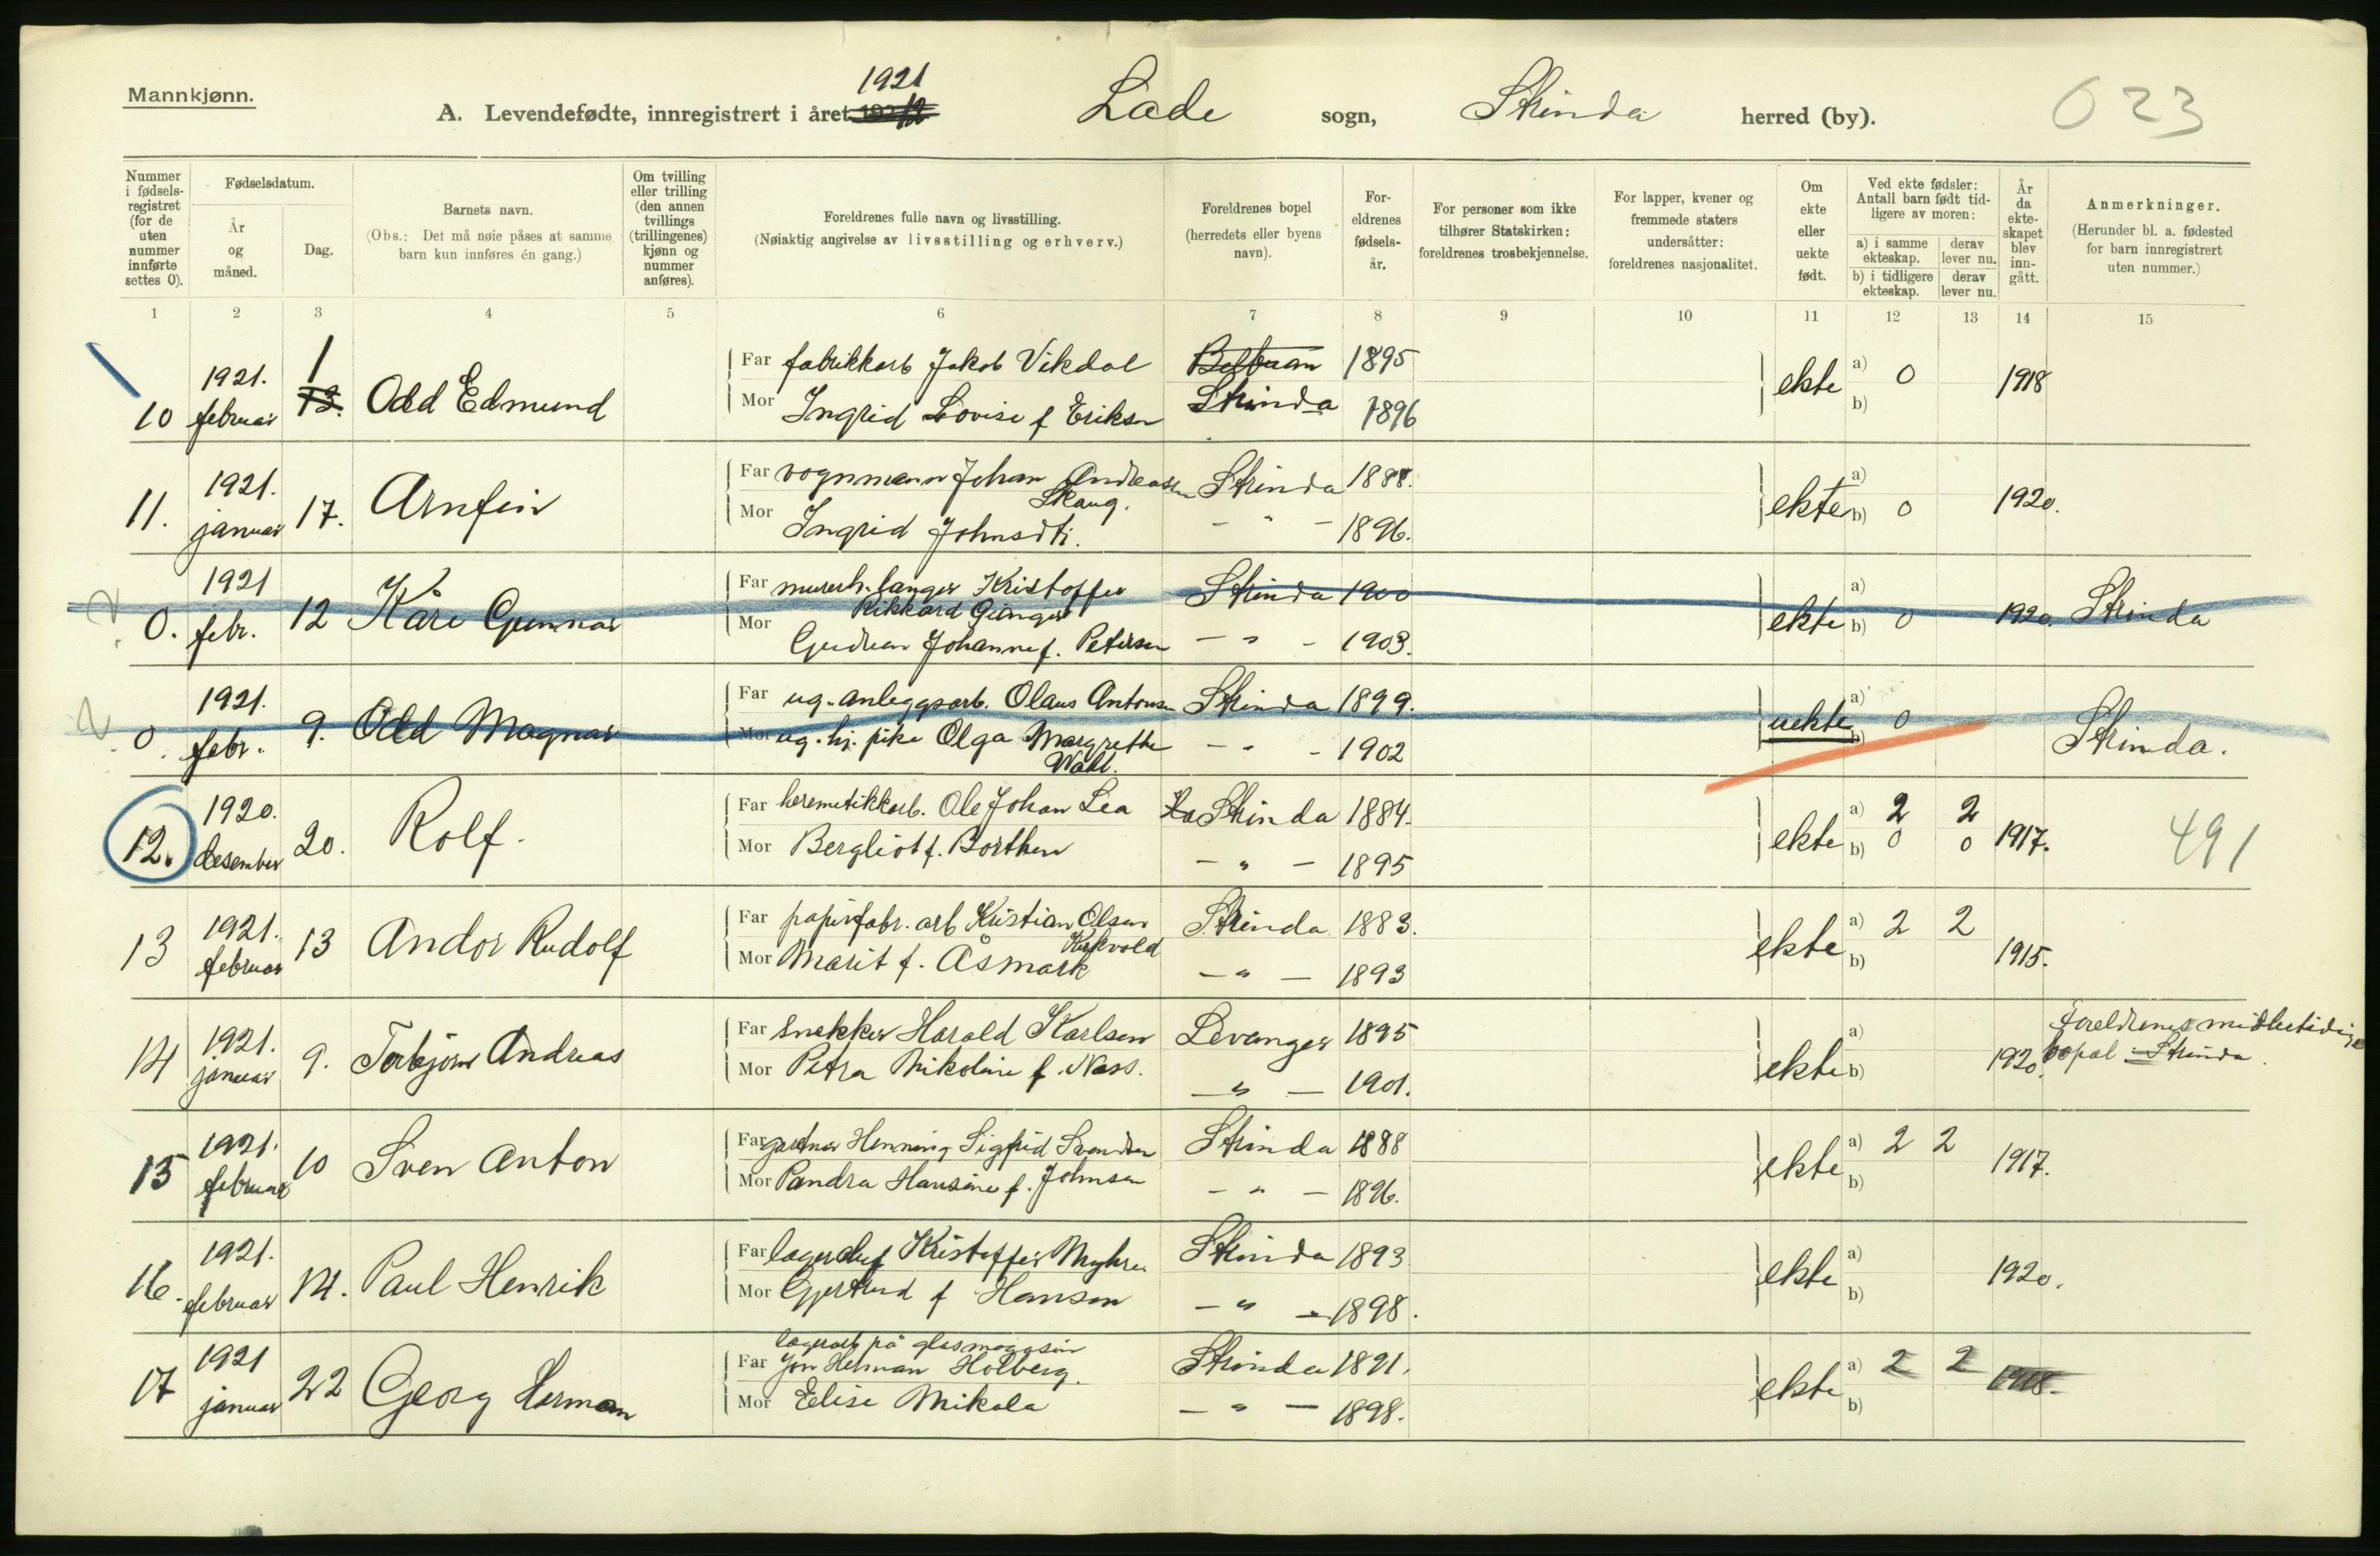 Mannkjønn.
1921
A. Levendefødte, innregistrert i året Lade sogn, Strinda herred (by). 023
Nummer i fødselsregistret (for de uten nummer innførte settes 0).
Fødselsdatum.
År og måned.
Dag.
Barnets navn.
(Obs.: Det må nøie påses at samme barn kun innføres én gang.)
Om tvilling eller trilling (den annen tvillings (trillingenes) kjønn og nummer anføres).
Foreldrenes fulle navn og livsstilling.
(Nøiaktig angivelse av livsstilling og erhverv.)
Foreldrenes bopel (herredets eller byens navn).
Foreldrenes fødselsår.
For personer som ikke tilhører Statskirken: foreldrenes trosbekjennelse.
For lapper, kvener og fremmede staters undersåtter: foreldrenes nasjonalitet.
Om ekte eller uekte født.
Ved ekte fødsler: Antall barn født tidligere av moren:
a) i samme ekteskap. derav lever nu.
b) i tidligere ekteskap. derav lever nu.
År da ekteskapet blev inngått.
Anmerkninger.
(Herunder bl. a. fødested for barn innregistrert uten nummer.)
1 2 3 4 5 6 7 8 9 10 11 12 13 14 15
1921. 1 Far fabrikkarb Jakob Vikdal 1895 a) 0
10 februar 13. Odd Edmund Mor Ingrid Lovise f Eriksen Strinda 1896 ekte b) 1918
1921. Far vognmann Johan Andreassen Skaug. Strinda 1888. a)
11. januar 17. Arnfin Mor Ingrid Johnsdtr. - " - 1896. ekte b) 0 1920.
1921 Far murerh.langer Kristoffer Rikkard Strinda 1900 a)
0. febr. 12 Kåre Gunnar Mor Gudrun Johanne f. Petersen - " - 1903. ekte b) 0 1920. Strinda
1921. Far ug. anleggsarb. Olaus Antonsen Strinda 1899. a)
0. febr. 9. Odd Magnar Mor ug. hj. pike Olga Margrethe Wahl. - " - 1902 uekte b) 0 Strinda.
1920. Far hermetikkarb. Ole Johan Lea Strinda 1884. a) 2 2
12. desember 20. Rolf. Mor Bergliot f. Borthen - " - 1895 ekte b) 0 0 1917. 491
1921. Far papirfabr. arb Kristian Olsen Kirkvold Strinda 1883. a) 2 2
13 februar 13 Andor Rudolf Mor Marit f. Åsmark - " - 1893 ekte b) 1915.
1921. Far Snekker Harald Karlsen Levanger 1895 a) foreldrenes midlertidige
14 januar 9. Torbjørn Andreas Mor Petra Nikoline f. Næss. - " - 1901. ekte b) 1920. bopæl = Strinda.
1921. Far gartner Henning Sigfrid Svendsen Strinda 1888 a) 2 2
15 februar 10 Sven Anton Mor Pandra Hansine f. Johnsen - " - 1896. ekte b) 1917.
1921. Far lagerchef Kristoffer Myhre Strinda 1893 a)
16. februar 14. Paul Henrik Mor Gjertrud f Hansen - " - 1898. ekte b) 1920.
lagerarb på glasmagasin
1921 Far Jon Herman Holberg. Strinda 1891. a) 2 2
17 januar 22 Georg Herman Mor Elise Mikala - " - 1898. ekte b) 1918.